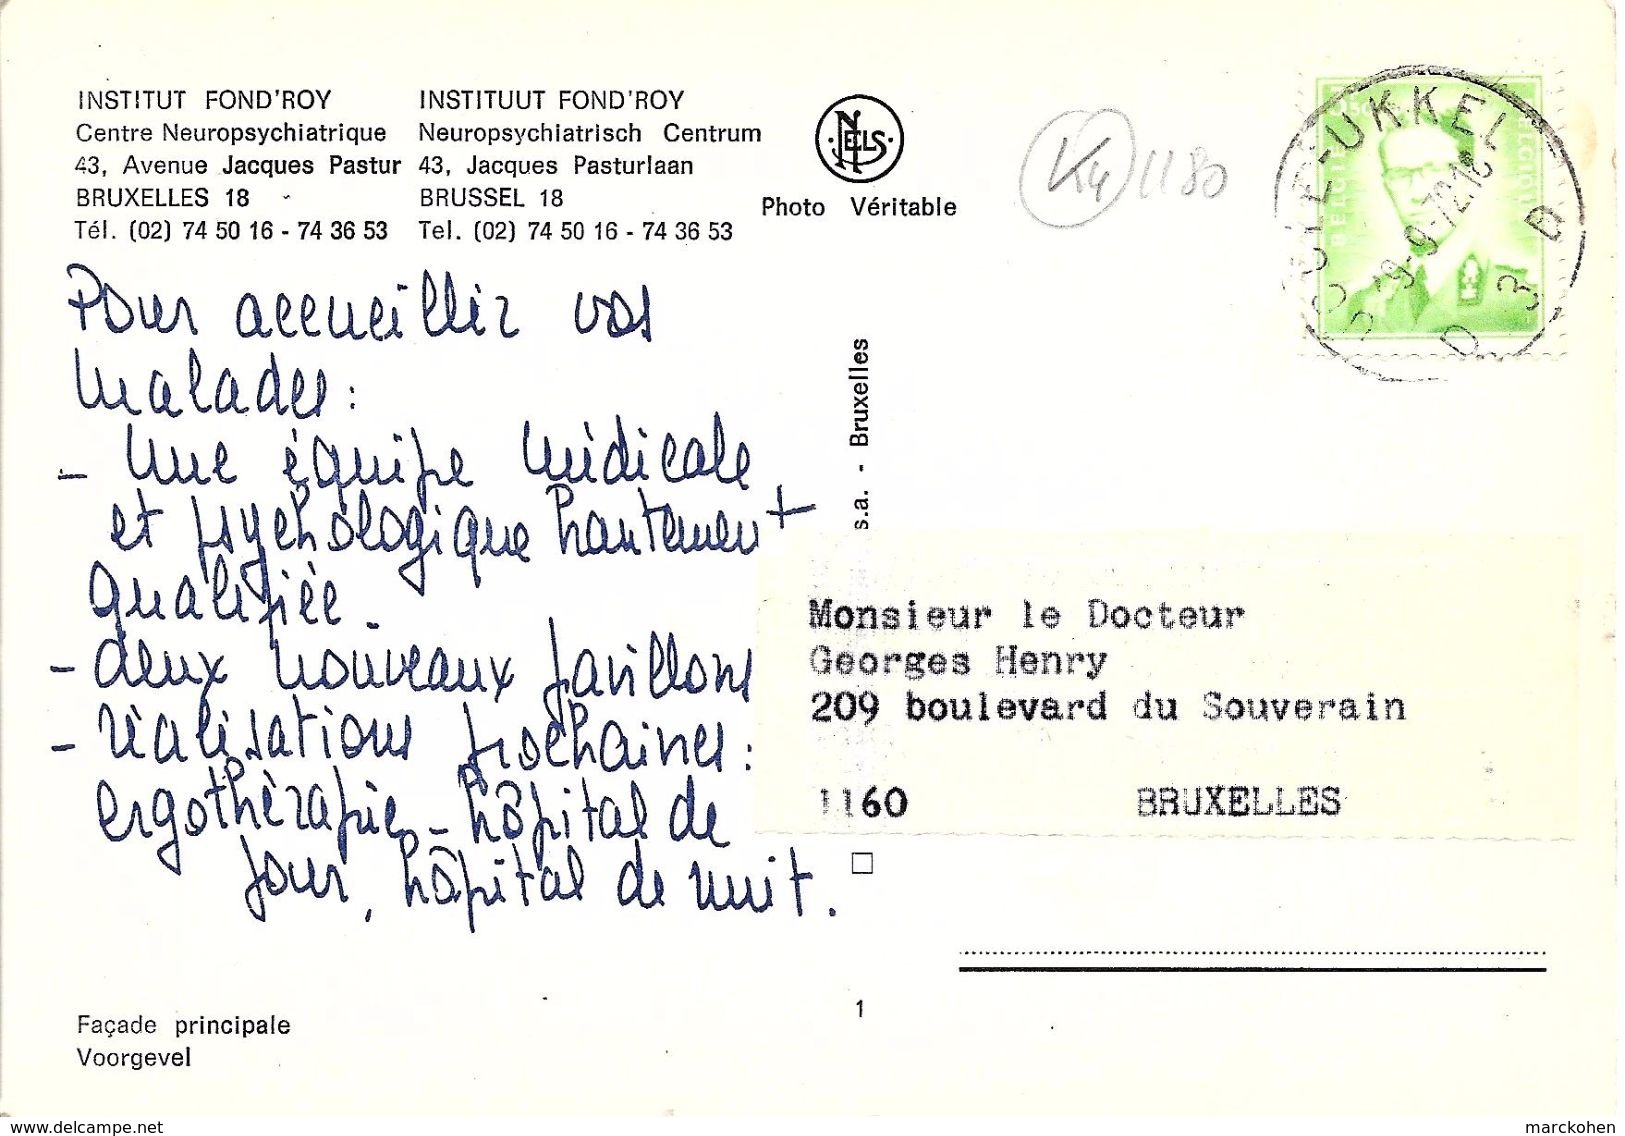 INSTITUT FOND'ROY
Centre Neuropsychiatrique
43, Avenue Jacques Pastur
BRUXELLES 18
Tél. (02) 74 50 16 - 74 36 53
INSTITUUT FOND'ROY
Neuropsychiatrisch Centrum
43, Jacques Pasturlaan
BRUSSEL 18
Tel. (02) 74 50 16 - 74 36 53
NELS
Photo Véritable
K4 1180
UCCLE-UKKEL
-9-72
D 3 D
Pour accueillir vos
malades :
- Une équipe médicale
et psychologique hautement
qualifiée.
- deux nouveaux pavillons
- réalisations prochaines :
ergothérapie - hôpital de
jour, hôpital de nuit.
s.a. - Bruxelles
Monsieur le Docteur
Georges Henry
209 boulevard du Souverain
1160 BRUXELLES
Façade principale
Voorgevel
1
www.delcampe.net
marckohen